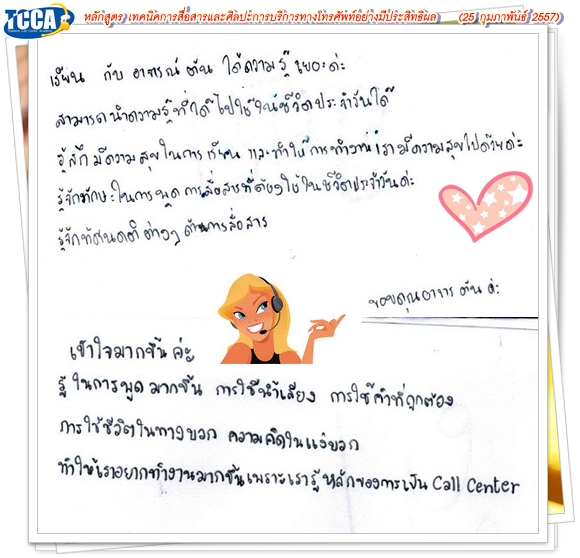 TCCA
Thailand Call Center Academy
หลักสูตร เทคนิคการสื่อสารและศิลปะการบริการทางโทรศัพท์อย่างมีประสิทธิผล (25 กุมภาพันธ์ 2557)
เรียน กับ อาจารณ์ ต้น ได้ความรู้ เยอะค่ะ
สามารถนำความรู้ที่ได้ไปใช้ในชีวิตประจำวันได้
รู้สึกมีความสุขในการเรียน และทำให้การทำงานเรามีความสุขไปด้วยค่ะ
รู้จักทักษะในการพูด การสื่อสารที่ต้องใช้ในชีวิตประจำวันค่ะ
รู้จักทัศนคติต่างๆ ด้านการสื่อสาร
ขอบคุณอาจาร ต้น ค่ะ
เข้าใจมากขึ้น ค่ะ
รู้ ในการพูด มากขึ้น การใช้น้ำเสียง การใช้คำที่ถูกต้อง
การใช้ชีวิตในทางบวก ความคิดในแง่บวก
ทำให้เราอยากทำงานมากขึ้นเพราะเรารู้หลักของการเป็น Call Center